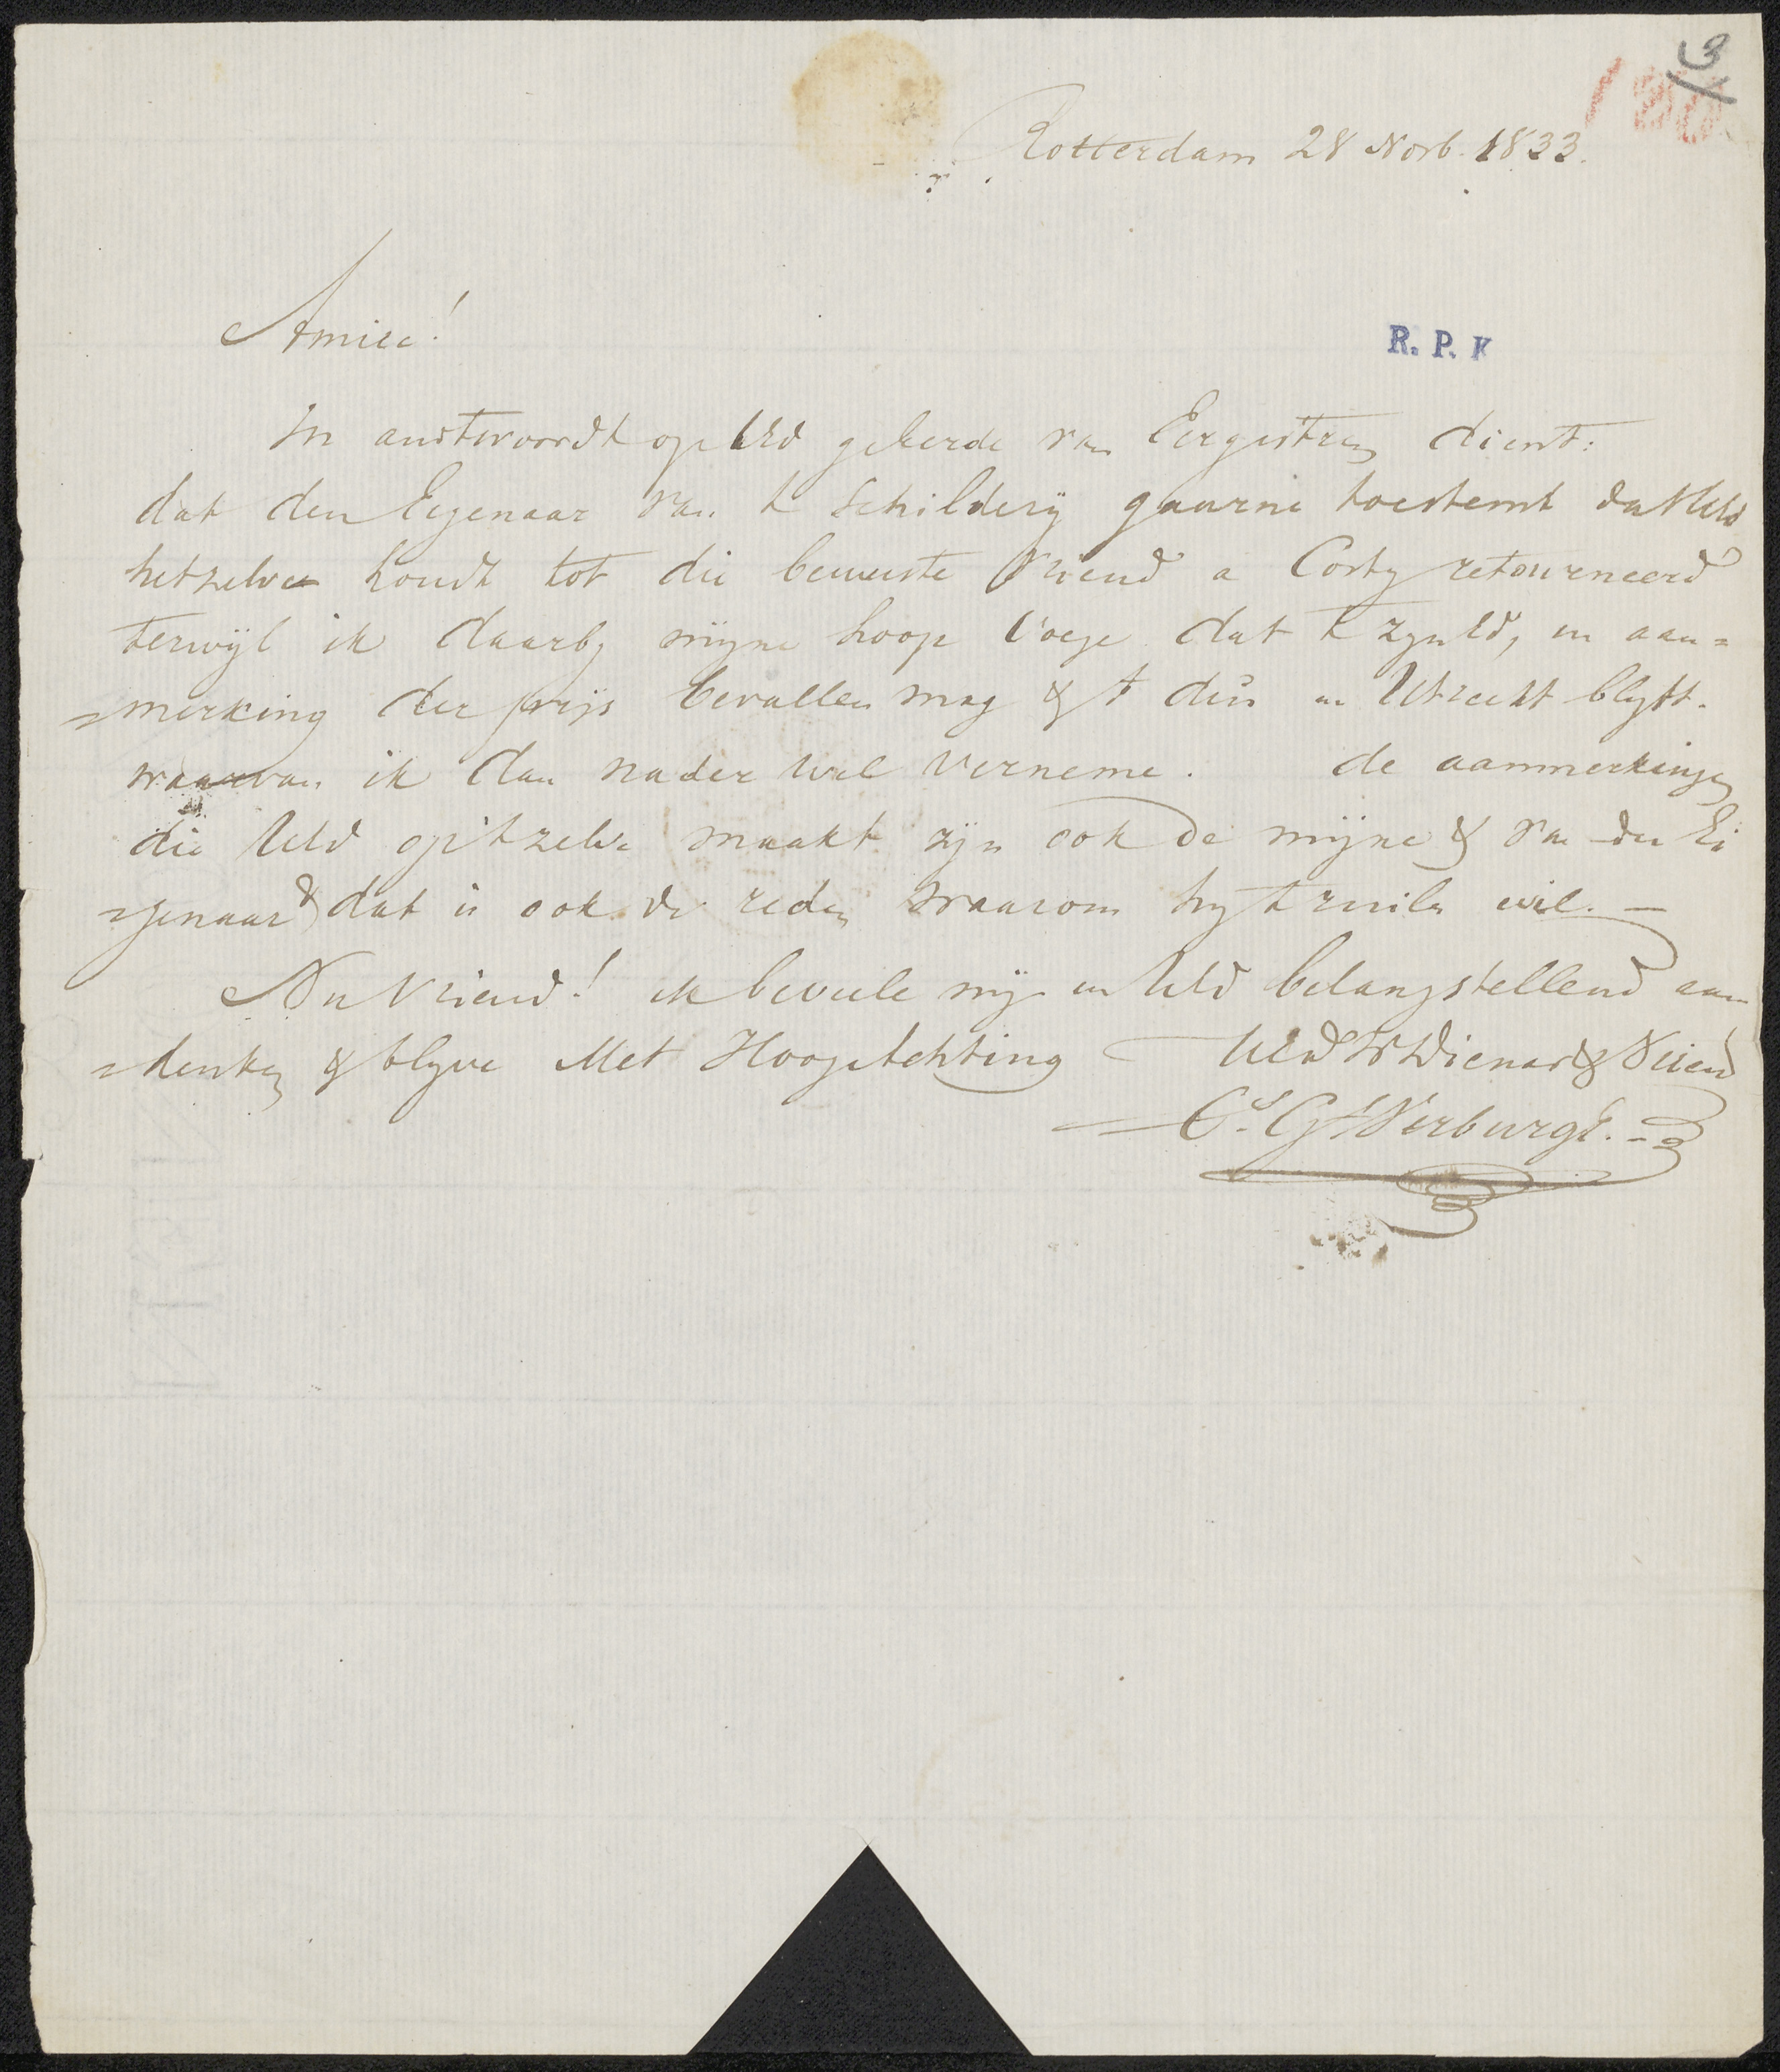 3
180
Rotterdam 28 Novb. 1833.
Amice!
R. P. K
In andtwoordt op UEd geëerde van Eergistren dient:
dat den Eigenaar van t Schildery gaarne toestemt dat UEd
hetzelve houdt tot die bewuste Vriend a Costy retourneerd
terwijl ik daarby mijne hoop voege dat t zynEd, in aan=
=merking der prijs bevallen mag & t dus in Utrecht blyft.
waarvan ik dan nader wel verneme. de aanmerkingen
die UEd op 't zelve maakt zijn ook de mijne & van den Ei
=genaar & dat is ook de reden waarom hy t ruilen wil. —
Nu Vriend! ik beveele mij in UEd belangstellend aan
=denken & blyve Met HoogAchting UEd Dienaar & Vriend
G Verburgh.